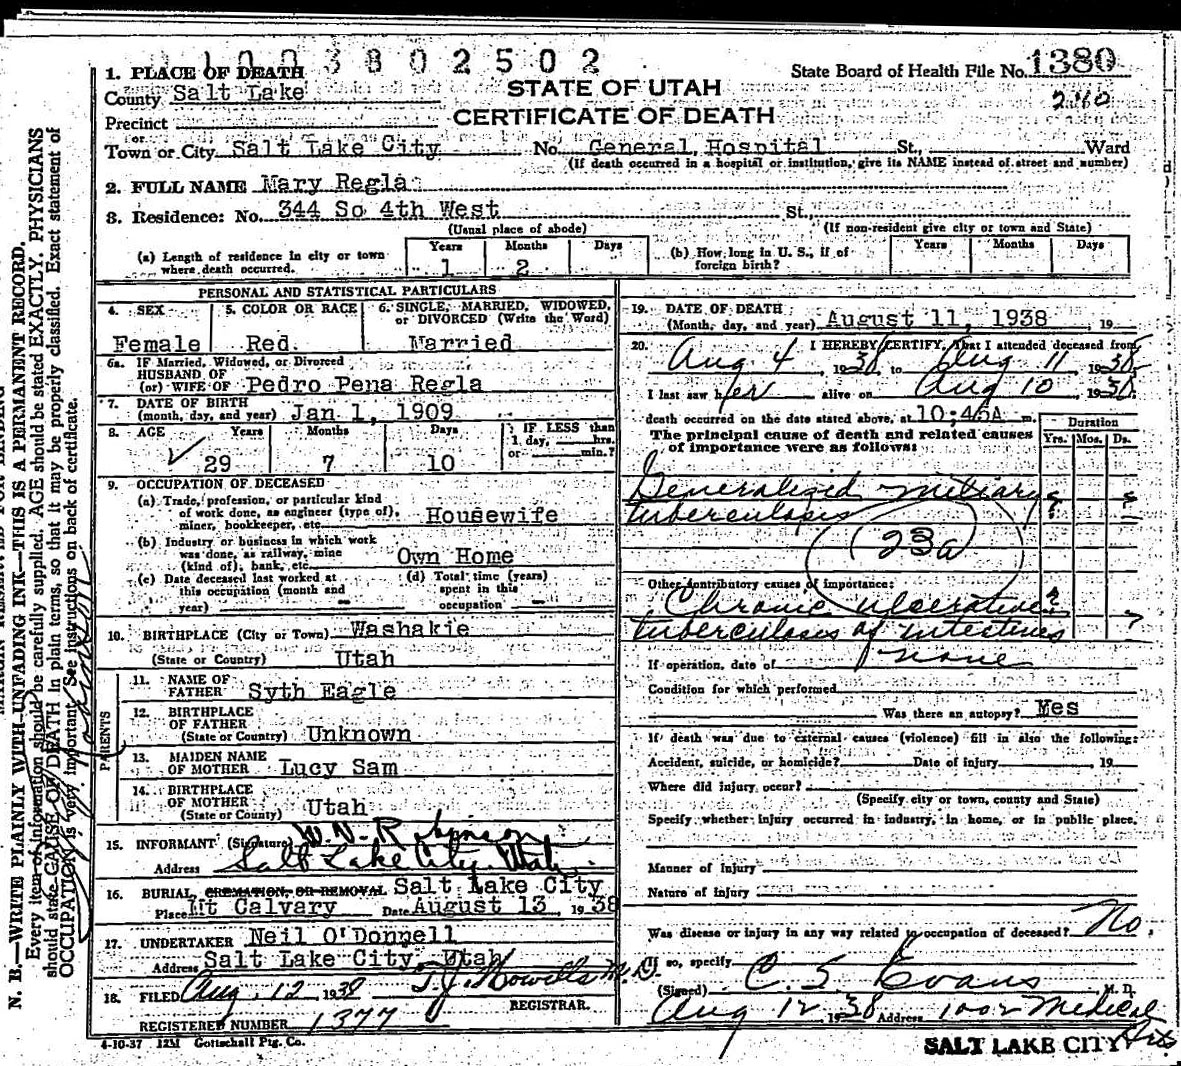 1003802502
State Board of Health File No. 1380
240
STATE OF UTAH
CERTIFICATE OF DEATH
1. PLACE OF DEATH
County Salt Lake
Precinct
or
Town or City Salt Lake City No. General Hospital St., Ward
(If death occurred in a hospital or institution, give its NAME instead of street and number)
2. FULL NAME Mary Regla
3. Residence: No. 344 So 4th West St.,
(Usual place of abode) (If non-resident give city or town and State)
(a) Length of residence in city or town where death occurred. Years 1 Months 2 Days
(b) How long in U. S., if of foreign birth? Years Months Days
PERSONAL AND STATISTICAL PARTICULARS
4. SEX Female
5. COLOR OR RACE Red.
6. SINGLE, MARRIED, WIDOWED, or DIVORCED (Write the Word) Married
6a. IF Married, Widowed, or Divorced
HUSBAND OF
(or) WIFE OF Pedro Pena Regla
7. DATE OF BIRTH
(month, day, and year) Jan 1, 1909
8. AGE Years 29 Months 7 Days 10 IF LESS than 1 day, hrs. or min.?
9. OCCUPATION OF DECEASED
(a) Trade, profession, or particular kind
of work done, as engineer (type of),
miner, bookkeeper, etc. Housewife
(b) Industry or business in which work
was done, as railway, mine
(kind of), bank, etc. Own Home
(c) Date deceased last worked at
this occupation (month and
year) -
(d) Total time (years)
spent in this
occupation -
10. BIRTHPLACE (City or Town) Washakie
(State or Country) Utah
PARENTS
11. NAME OF
FATHER Syth Eagle
12. BIRTHPLACE
OF FATHER
(State or Country) Unknown
13. MAIDEN NAME
OF MOTHER Lucy Sam
14. BIRTHPLACE
OF MOTHER
(State or Country) Utah
15. INFORMANT (Signature) W. N. Robinson
Address Salt Lake City Utah.
16. BURIAL, CREMATION, OR REMOVAL Salt Lake City
Place Mt Calvary Date August 13, 1938
17. UNDERTAKER Neil O'Donnell
Address Salt Lake City, Utah
18. FILED Aug. 12 1938 T. J. Howells M.D.
REGISTRAR.
REGISTERED NUMBER 1377
4-10-37 12M Gottschall Ptg. Co.
19. DATE OF DEATH
(Month, day, and year) August 11, 1938, 19
20. I HEREBY CERTIFY, That I attended deceased from
Aug 4, 1938, to Aug 11, 1938,
I last saw her alive on Aug 10, 1938,
death occurred on the date stated above, at 10:45A m.
The principal cause of death and related causes
of importance were as follows:
Duration
Yrs. Mos. Ds.
Generalized miliary ? ?
tuberculosis
(23a)
Other contributory causes of importance:
Chronic ulcerative ?
tuberculosis of intestines ?
If operation, date of none
Condition for which performed
Was there an autopsy? Mes
If death was due to external causes (violence) fill in also the following:
Accident, suicide, or homicide? Date of injury 19
Where did injury occur?
(Specify city or town, county and State)
Specify whether injury occurred in industry, in home, or in public place.
Manner of injury
Nature of injury
Was disease or injury in any way related to occupation of deceased? No.
If so, specify
(Signed) C. S. Evans M. D.
Aug 12 1938 Address 1002 Medical Arts
SALT LAKE CITY
N. B.—WRITE PLAINLY WITH UNFADING INK—THIS IS A PERMANENT RECORD.
Every item of information should be carefully supplied. AGE should be stated EXACTLY. PHYSICIANS
should state CAUSE OF DEATH in plain terms, so that it may be properly classified. Exact statement of
OCCUPATION is very important. See instructions on back of certificate.